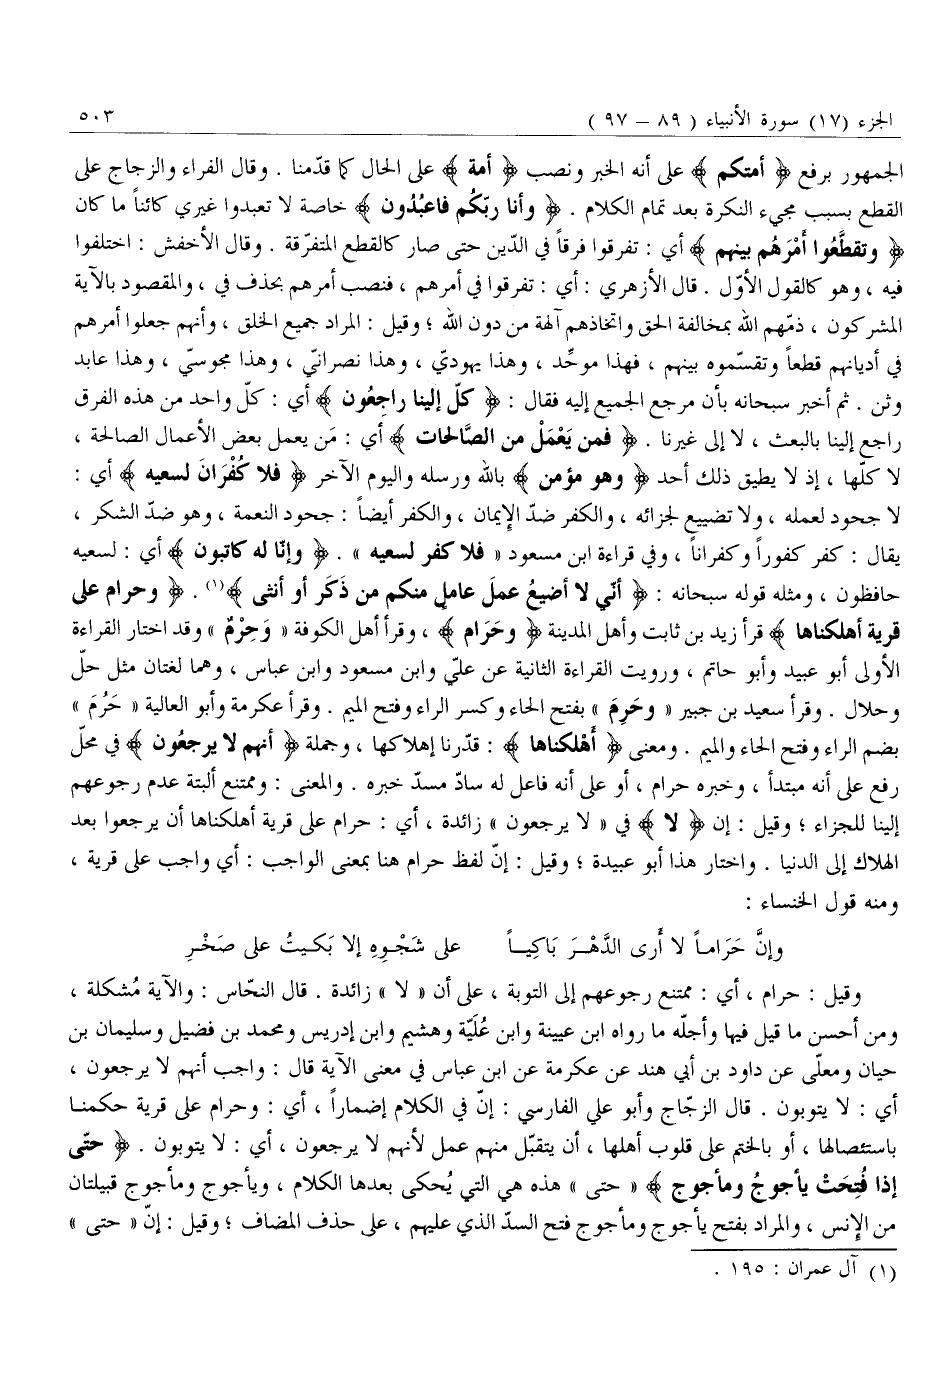 الجزء (١٧) سورة الأنبياء ( ٨٩ – ٩٧ ) ٥٠٣
الجمهور برفع ﴿ أمتكم ﴾ على أنه الخبر ونصب ﴿ أمة ﴾ على الحال كما قدّمنا . وقال الفراء والزجاج على
القطع بسبب مجيء النكرة بعد تمام الكلام . ﴿ وأنا ربّكُم فاعبُدون ﴾ خاصة لا تعبدوا غيري كائناً ما كان
﴿ وتقطَّعُوا أمْرَهُم بينهم ﴾ أي : تفرقوا فرقاً في الدّين حتى صار كالقطع المتفرّقة . وقال الأخفش : اختلفوا
فيه ، وهو كالقول الأوّل . قال الأزهري : أي : تفرقوا في أمرهم ، فنصب أمرهم بحذف في ، والمقصود بالآية
المشركون ، ذمّهم الله بمخالفة الحق واتخاذهم آلهة من دون الله ؛ وقيل : المراد جميع الخلق ، وأنهم جعلوا أمرهم
في أديانهم قطعاً وتقسّموه بينهم ، فهذا موحِّد ، وهذا يهوديّ ، وهذا نصرانيّ ، وهذا مجوسيّ ، وهذا عابد
وثن . ثم أخبر سبحانه بأن مرجع الجميع إليه فقال : ﴿ كلّ إلينا راجعُون ﴾ أي : كلّ واحد من هذه الفرق
راجع إلينا بالبعث ، لا إلى غيرنا . ﴿ فمن يَعْمَلْ من الصَّالحات ﴾ أي : مَن يعمل بعض الأعمال الصالحة ،
لا كلّها ، إذ لا يطيق ذلك أحد ﴿ وهو مؤمن ﴾ بالله ورسله واليوم الآخر ﴿ فلا كُفْرَانَ لسعيه ﴾ أي :
لا جحود لعمله ، ولا تضييع لجزائه ، والكفر ضدّ الإيمان ، والكفر أيضاً : جحود النعمة ، وهو ضدّ الشكر ،
يقال : كفر كفوراً وكفراناً ، وفي قراءة ابن مسعود « فلا كفر لسعيه » . ﴿ وإنّا له كاتبون ﴾ أي : لسعيه
حافظون ، ومثله قوله سبحانه : ﴿ أنّي لا أضيعُ عملَ عاملٍ منكم من ذَكَر أو أنثى ﴾(١) . ﴿ وحرام على
قرية أهلكناها ﴾ قرأ زيد بن ثابت وأهل المدينة ﴿ وحَرَام ﴾ ، وقرأ أهل الكوفة « وَحِرْمٌ » وقد اختار القراءة
الأولى أبو عبيد وأبو حاتم ، ورويت القراءة الثانية عن عليّ وابن مسعود وابن عباس ، وهما لغتان مثل حلّ
وحلال . وقرأ سعيد بن جبير « وحَرِمَ » بفتح الحاء وكسر الراء وفتح الميم . وقرأ عكرمة وأبو العالية « حَرُمَ »
بضم الراء وفتح الحاء والميم . ومعنى ﴿ أَهْلكناها ﴾ : قدّرنا إهلاكها ، وجملة ﴿ أنهم لا يرجعُون ﴾ في محلّ
رفع على أنه مبتدأ ، وخبره حرام ، أو على أنه فاعل له سادّ مسدّ خبره . والمعنى : وممتنع ألبتة عدم رجوعهم
إلينا للجزاء ؛ وقيل : إن ﴿ لا ﴾ في « لا يرجعون » زائدة ، أي : حرام على قرية أهلكناها أن يرجعوا بعد
الهلاك إلى الدنيا . واختار هذا أبو عبيدة ؛ وقيل : إنّ لفظ حرام هنا بمعنى الواجب : أي واجب على قرية ،
ومنه قول الخنساء :
وإنَّ حَرَاماً لا أَرى الدَّهْرَ بَاكِيَاً على شَجْوِهِ إلا بَكيتُ على صَخْرِ
وقيل : حرام ، أي : ممتنع رجوعهم إلى التوبة ، على أن « لا » زائدة . قال النحّاس : والآية مُشكلة ،
ومن أحسن ما قيل فيها وأجلّه ما رواه ابن عيينة وابن عُلَيّة وهشيم وابن إدريس ومحمد بن فضيل وسليمان بن
حيان ومعلّى عن داود بن أبي هند عن عكرمة عن ابن عباس في معنى الآية قال : واجب أنهم لا يرجعون ،
أي : لا يتوبون . قال الزجّاج وأبو علي الفارسي : إنّ في الكلام إضماراً ، أي : وحرام على قرية حكمنا
باستئصالها ، أو بالختم على قلوب أهلها ، أن يتقبّل منهم عمل لأنهم لا يرجعون ، أي : لا يتوبون . ﴿ حتّى
إذا فُتِحَتْ يأجوجُ ومأجوج ﴾ « حتى » هذه هي التي يُحكى بعدها الكلام ، ويأجوج ومأجوج قبيلتان
من الإنس ، والمراد بفتح يأجوج ومأجوج فتح السدّ الذي عليهم ، على حذف المضاف ؛ وقيل : إنّ « حتى »
(١) آل عمران : ١٩٥ .